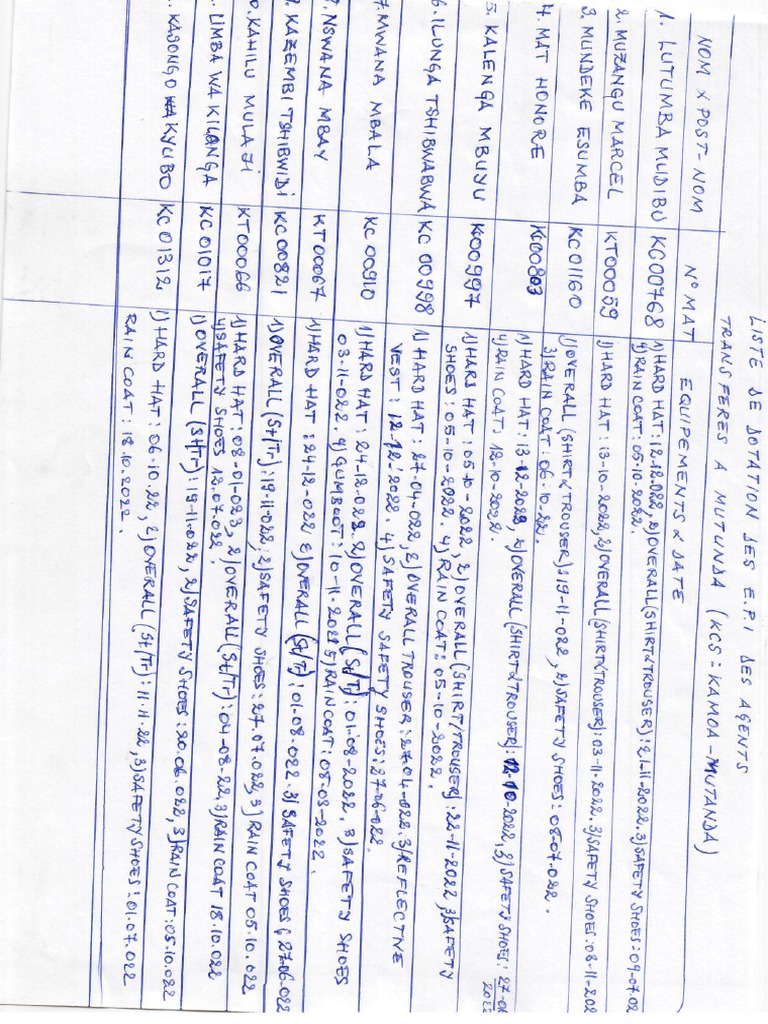 LISTE DE DOTATION DES E.P.I DES AGENTS
TRANSFERES A MUTUNDA (KCS = KAMOA-MUTANDA)
NOM & POST-NOM N° MAT EQUIPEMENTS & DATE
1. LUTUMBA MUDIBU KC00768 1) HARD HAT: 12.12.022, 2) OVERALL (SHIRT & TROUSER): 21-11-2022. 3) SAFETY SHOES: 09-07.02
4) RAIN COAT: 05.10-2022.
2. MUZANGU MARCEL KT00059 1) HARD HAT: 13-10-2022, 2) OVERALL (SHIRT & TROUSER): 03-11-2022. 3) SAFETY SHOES: 08-11-202
3. MUNDEKE ESUMBA KC01160 1) OVERALL (SHIRT & TROUSER): 19-11-022, 2) SAFETY SHOES: 08-07.022.
3) RAIN COAT: 06.10-22.
4. MAT HONORE KC00803 1) HARD HAT: 13-12-2022, 2) OVERALL (SHIRT & TROUSER): 12-10-2022, 3) SAFETY SHOES: 27-06
2022
4) RAIN COAT: 12-10-2022.
5. KALENGA MBUYU KC00997 1) HARD HAT: 05-10-2022, 2) OVERALL (SHIRT/TROUSER): 22-11-2022, 3) SAFETY
SHOES: 05-10-2022. 4) RAIN COAT: 05-10-2022.
6. ILUNGA TSHIBWABWA KC 00998 1) HARD HAT: 27-04-022, 2) OVERALL TROUSER: 27.04-022. 3) REFLECTIVE
VEST: 12.12.2022. 4) SAFETY SHOES: 27-06-022.
7. MWANA MBALA KC 00910 1) HARD HAT: 24-12-022. 2) OVERALL (St/Tr): 01-08-2022, 3) SAFETY SHOES
03-11-022. 4) GUMBOOT: 10-11-2021 5) RAIN COAT: 08-03-2022.
?. NSWANA MBAY KT00067 1) HARD HAT: 24-12-022 2) OVERALL (St/Tr): 01-08.022. 3) SAFETY SHOES: 27.06.022
9. KAZEMBI TSHIBWIDI KC00821 1) OVERALL (St/Tr): 19-11-022: 2) SAFETY SHOES: 27.07.022, 3) RAIN COAT 05.10.022
0. KAHILU MULAJI KT00066 1) HARD HAT: 08-01-023, 2) OVERALL (St/Tr): 04-08-22. 3) RAIN COAT 18.10.022
4) SAFETY SHOES 12.07.022
. LIMBA WA KILONGA KC01017 1) OVERALL (St/Tr): 19-11-022, 2) SAFETY SHOES: 20.06.022, 3) RAIN COAT: 05.10.022
. KASONGO WA KYUBO KC01312 1) HARD HAT: 06.10.22, 2) OVERALL (St/Tr): 11.11.22, 3) SAFETY SHOES: 01.07.022
RAIN COAT: 18.10.2022.